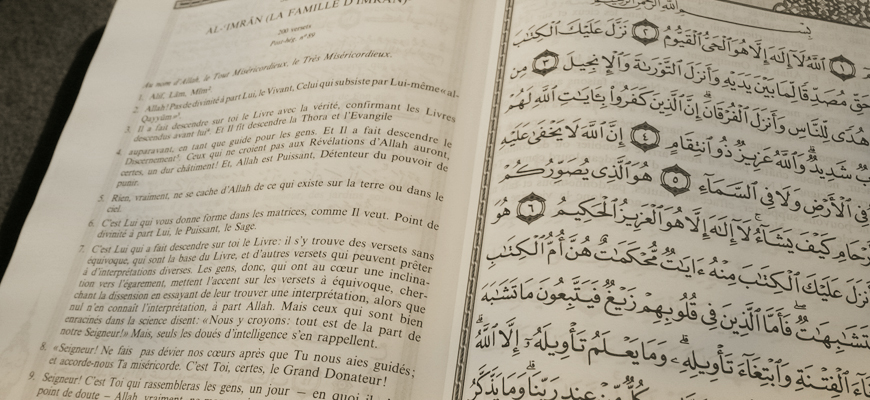 AL-'IMRÂN (LA FAMILLE D'IMRAN)
200 versets
Post-hég. n°89
Au nom d'Allah, le Tout Miséricordieux, le Très Miséricordieux.
1. Alif, Lâm, Mîm
2. Allah! Pas de divinité à part Lui, le Vivant, Celui qui subsiste par Lui-même «al-
Qayyûm»
3. Il a fait descendre sur toi le Livre avec la vérité, confirmant les Livres
descendus avant lui. Et Il fit descendre la Thora et l'Evangile
4. auparavant, en tant que guide pour les gens. Et Il a fait descendre le
Discernement. Ceux qui ne croient pas aux Révélations d'Allah auront,
certes, un dur châtiment! Et, Allah est Puissant, Détenteur du pouvoir de
punir.
5. Rien, vraiment, ne se cache d'Allah de ce qui existe sur la terre ou dans le
ciel.
6. C'est Lui qui vous donne forme dans les matrices, comme Il veut. Point de
divinité à part Lui, le Puissant, le Sage.
7. C'est Lui qui a fait descendre sur toi le Livre: il s'y trouve des versets sans
équivoque, qui sont la base du Livre, et d'autres versets qui peuvent prêter
à d'interprétations diverses. Les gens, donc, qui ont au cœur une inclina-
tion vers l'égarement, mettent l'accent sur les versets à équivoque, cher-
chant la dissension en essayant de leur trouver une interprétation, alors que
nul n'en connaît l'interprétation, à part Allah. Mais ceux qui sont bien
enracinés dans la science disent: «Nous y croyons: tout est de la part de
notre Seigneur!» Mais, seuls les doués d'intelligence s'en rappellent.
8. «Seigneur! Ne fais pas dévier nos cœurs après que Tu nous aies guidés;
et accorde-nous Ta miséricorde. C'est Toi, certes, le Grand Donateur!
9. Seigneur! C'est Toi qui rassembleras les gens, un jour – en quoi il
point de doute – Allah, vraiment,
ٱللَّهِ ٱلرَّحْمَٰنِ ٱلرَّحِيمِ
١ ٱللَّهُ لَآ إِلَٰهَ إِلَّا هُوَ ٱلْحَىُّ ٱلْقَيُّومُ ٢ نَزَّلَ عَلَيْكَ ٱلْكِتَٰبَ
مُصَدِّقًا لِّمَا بَيْنَ يَدَيْهِ وَأَنزَلَ ٱلتَّوْرَىٰةَ وَٱلْإِنجِيلَ ٣ مِن
هُدًى لِّلنَّاسِ وَأَنزَلَ ٱلْفُرْقَانَ إِنَّ ٱلَّذِينَ كَفَرُوا۟ بِـَٔايَٰتِ ٱللَّهِ لَهُمْ
شَدِيدٌ وَٱللَّهُ عَزِيزٌ ذُو ٱنتِقَامٍ ٤ إِنَّ ٱللَّهَ لَا يَخْفَىٰ عَلَيْهِ
فِى ٱلْأَرْضِ وَلَا فِى ٱلسَّمَآءِ ٥ هُوَ ٱلَّذِى يُصَوِّرُكُمْ
كَيْفَ يَشَآءُ لَآ إِلَٰهَ إِلَّا هُوَ ٱلْعَزِيزُ ٱلْحَكِيمُ ٦ هُوَ
أَنزَلَ عَلَيْكَ ٱلْكِتَٰبَ مِنْهُ ءَايَٰتٌ مُّحْكَمَٰتٌ هُنَّ أُمُّ ٱلْكِتَٰبِ
فَأَمَّا ٱلَّذِينَ فِى قُلُوبِهِمْ زَيْغٌ فَيَتَّبِعُونَ مَا تَشَٰبَهَ
ٱلْفِتْنَةِ وَٱبْتِغَآءَ تَأْوِيلِهِۦ وَمَا يَعْلَمُ تَأْوِيلَهُۥٓ إِلَّا ٱللَّهُ
كُلٌّ مِّنْ عِندِ رَبِّنَا وَمَا يَذَّكَّرُ